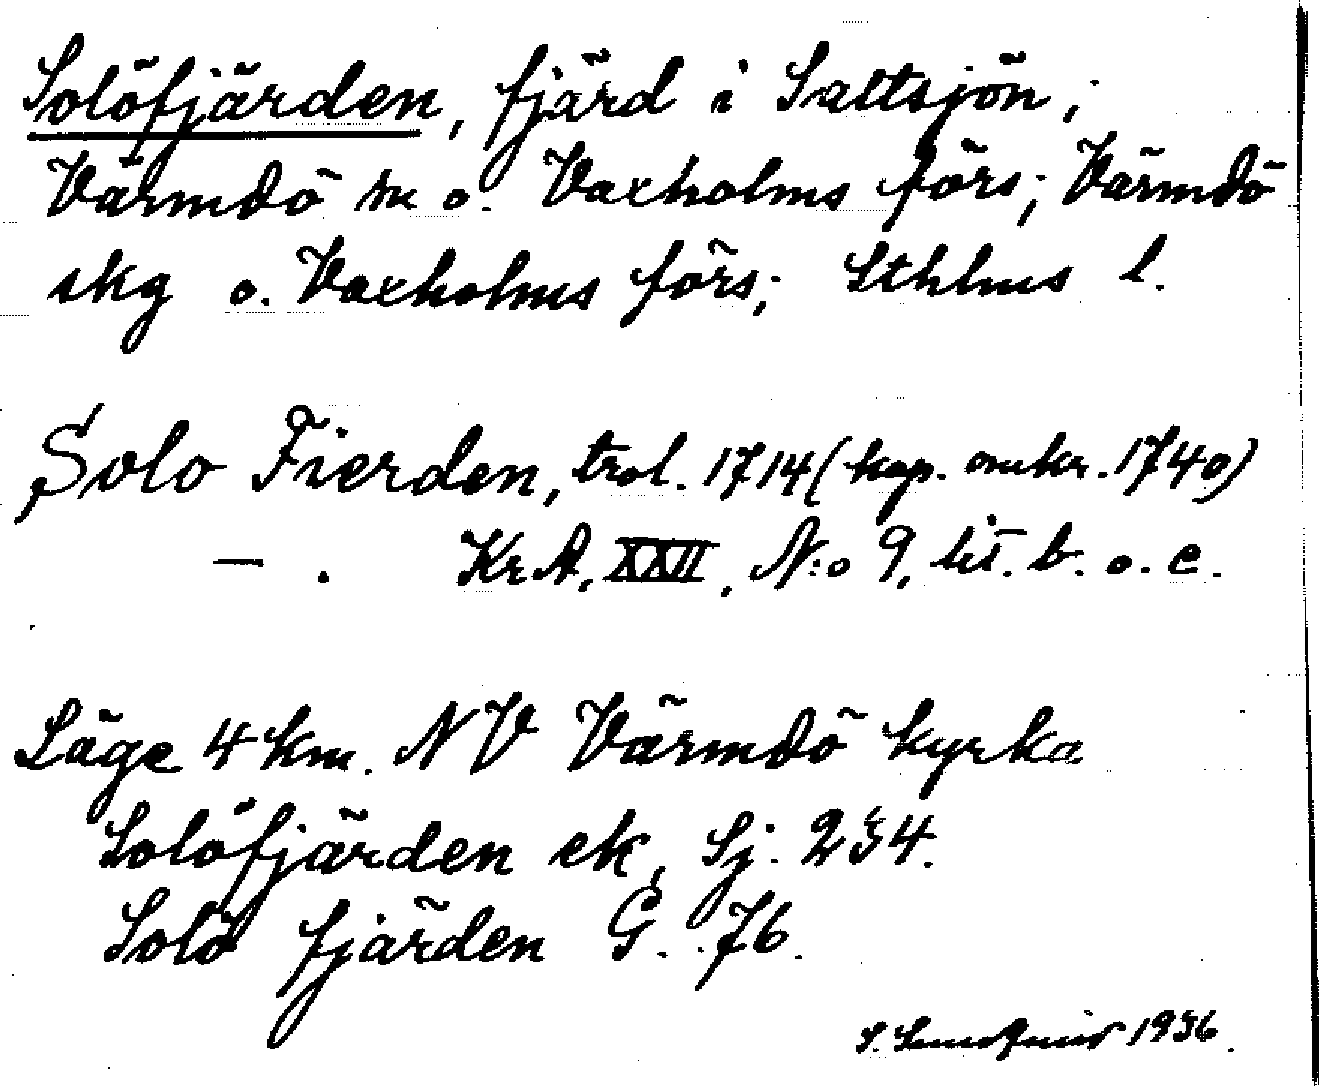 Solöfjärden, fjärd i Saltsjön;
Värmdö sn o. Vaxholms förs; Värmdö
skg o. Vaxholms förs; Sthlms l.
Solo Fierden, trol. 1714 (kop. omkr. 1740)
— . KrA, XXII, N:o 9, lit. b. o. c.
Läge 4 km. NV Värmdö kyrka
Solöfjärden ek, Sj. 234.
Solö fjärden G. 76.
S. 1936.